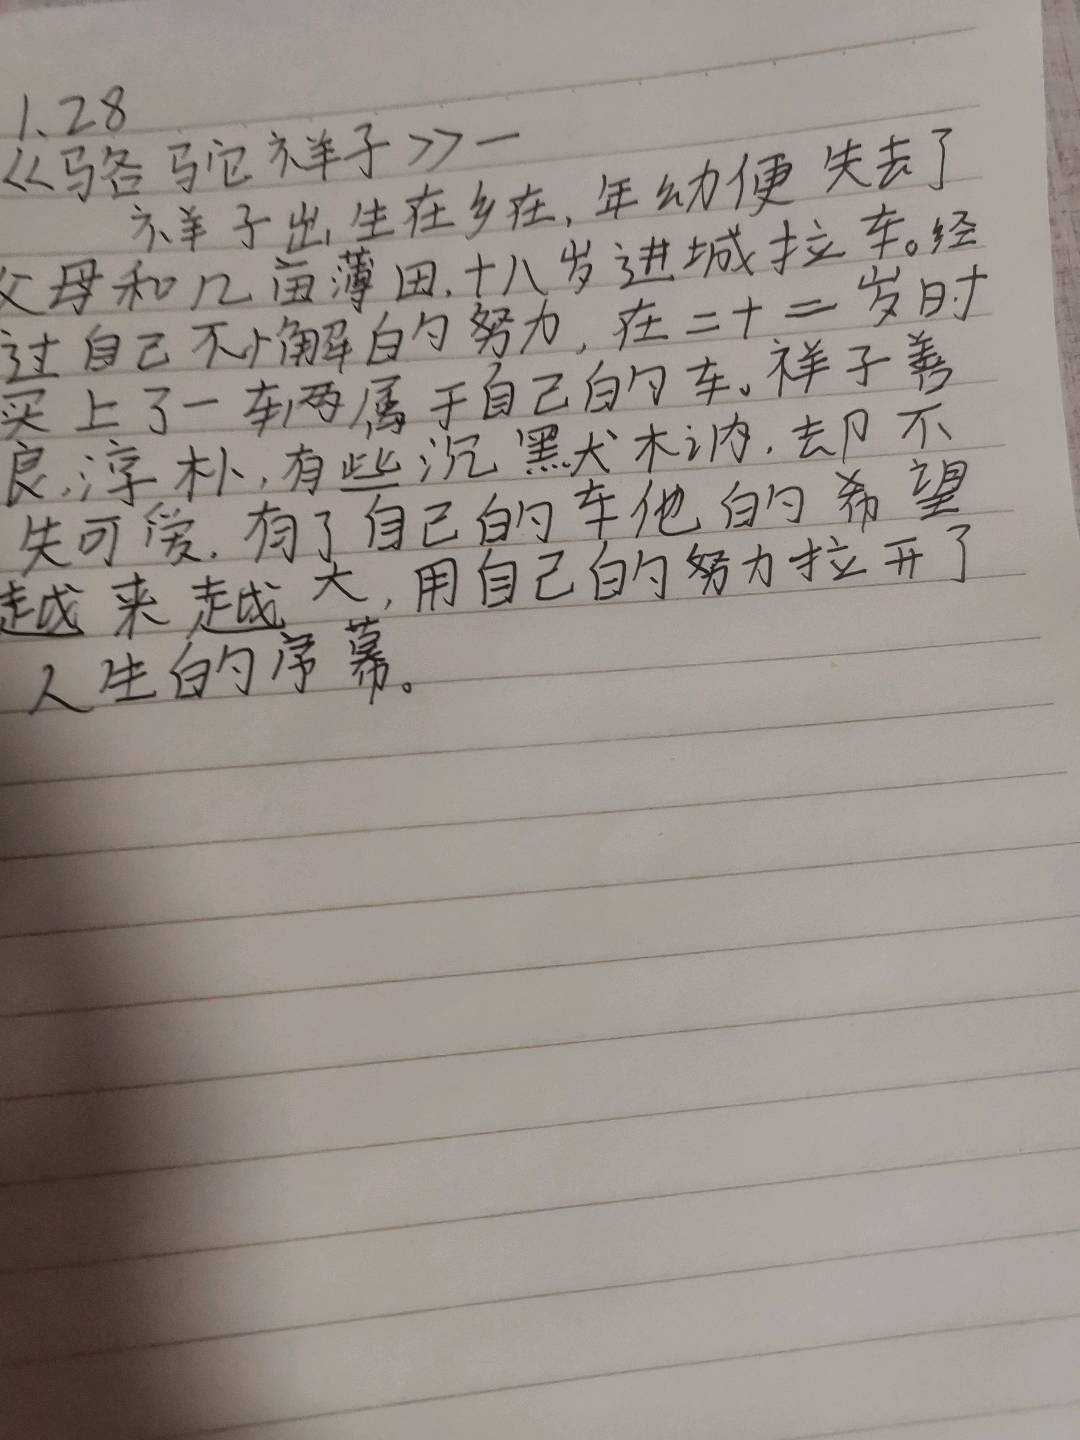 1.28
《骆驼祥子》一
祥子出生在乡在,年幼便失去了
父母和几亩薄田.十八岁进城拉车。经
过自己不懈的努力,在二十二岁时
买上了一车两属于自己的车。祥子善
良,淳朴,有些沉默木讷.却不
失可爱.有了自己的车他的希望
越来越大,用自己的努力拉开了
人生的序幕。